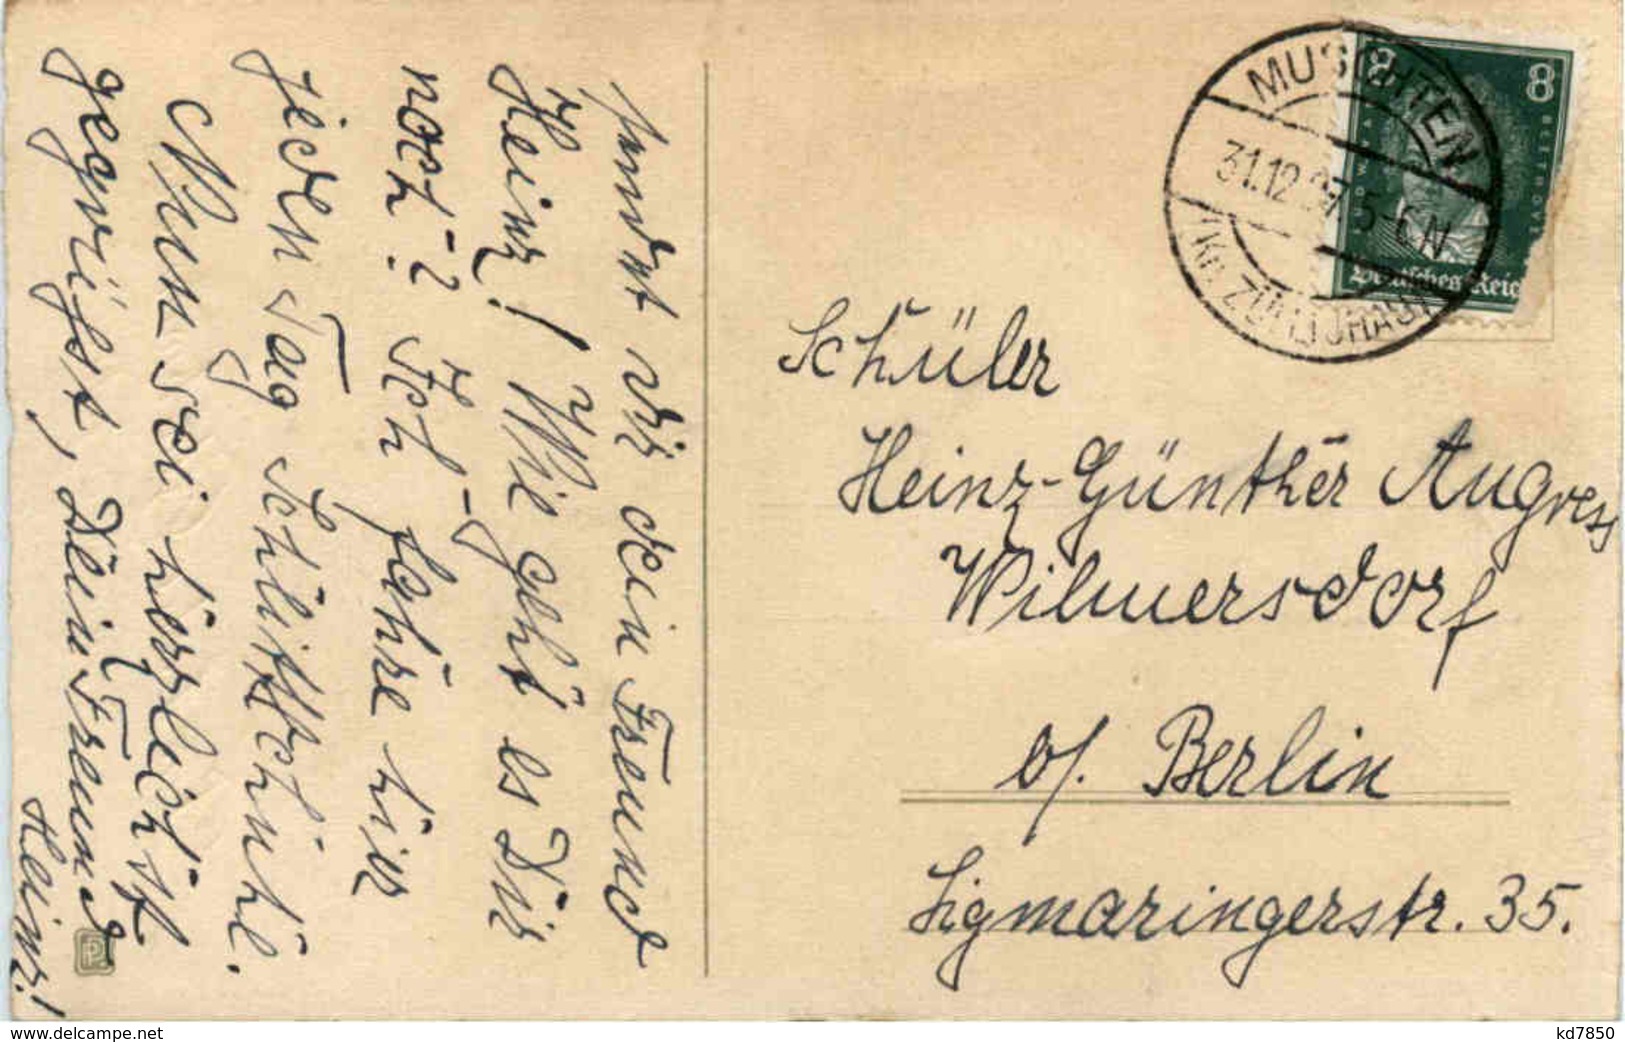 sendet dir dein Freund
Heinz! Wie geht es Dir
noch? Ich fahre hier
jeden Tag Schlittschuhe.
Nun sei herzlichst
gegrüßt, Dein Freund
Heinz!
MUSCHTEN
31.12.27.5-6N
(KR. ZÜLLICHAU)
8
8
BEETHOVEN
LUDWIG VAN
Deutsches Reich
Schüler
Heinz-Günther Augress
Wilmersdorf
b/. Berlin
Sigmaringerstr. 35.
www.delcampe.net
kd7850